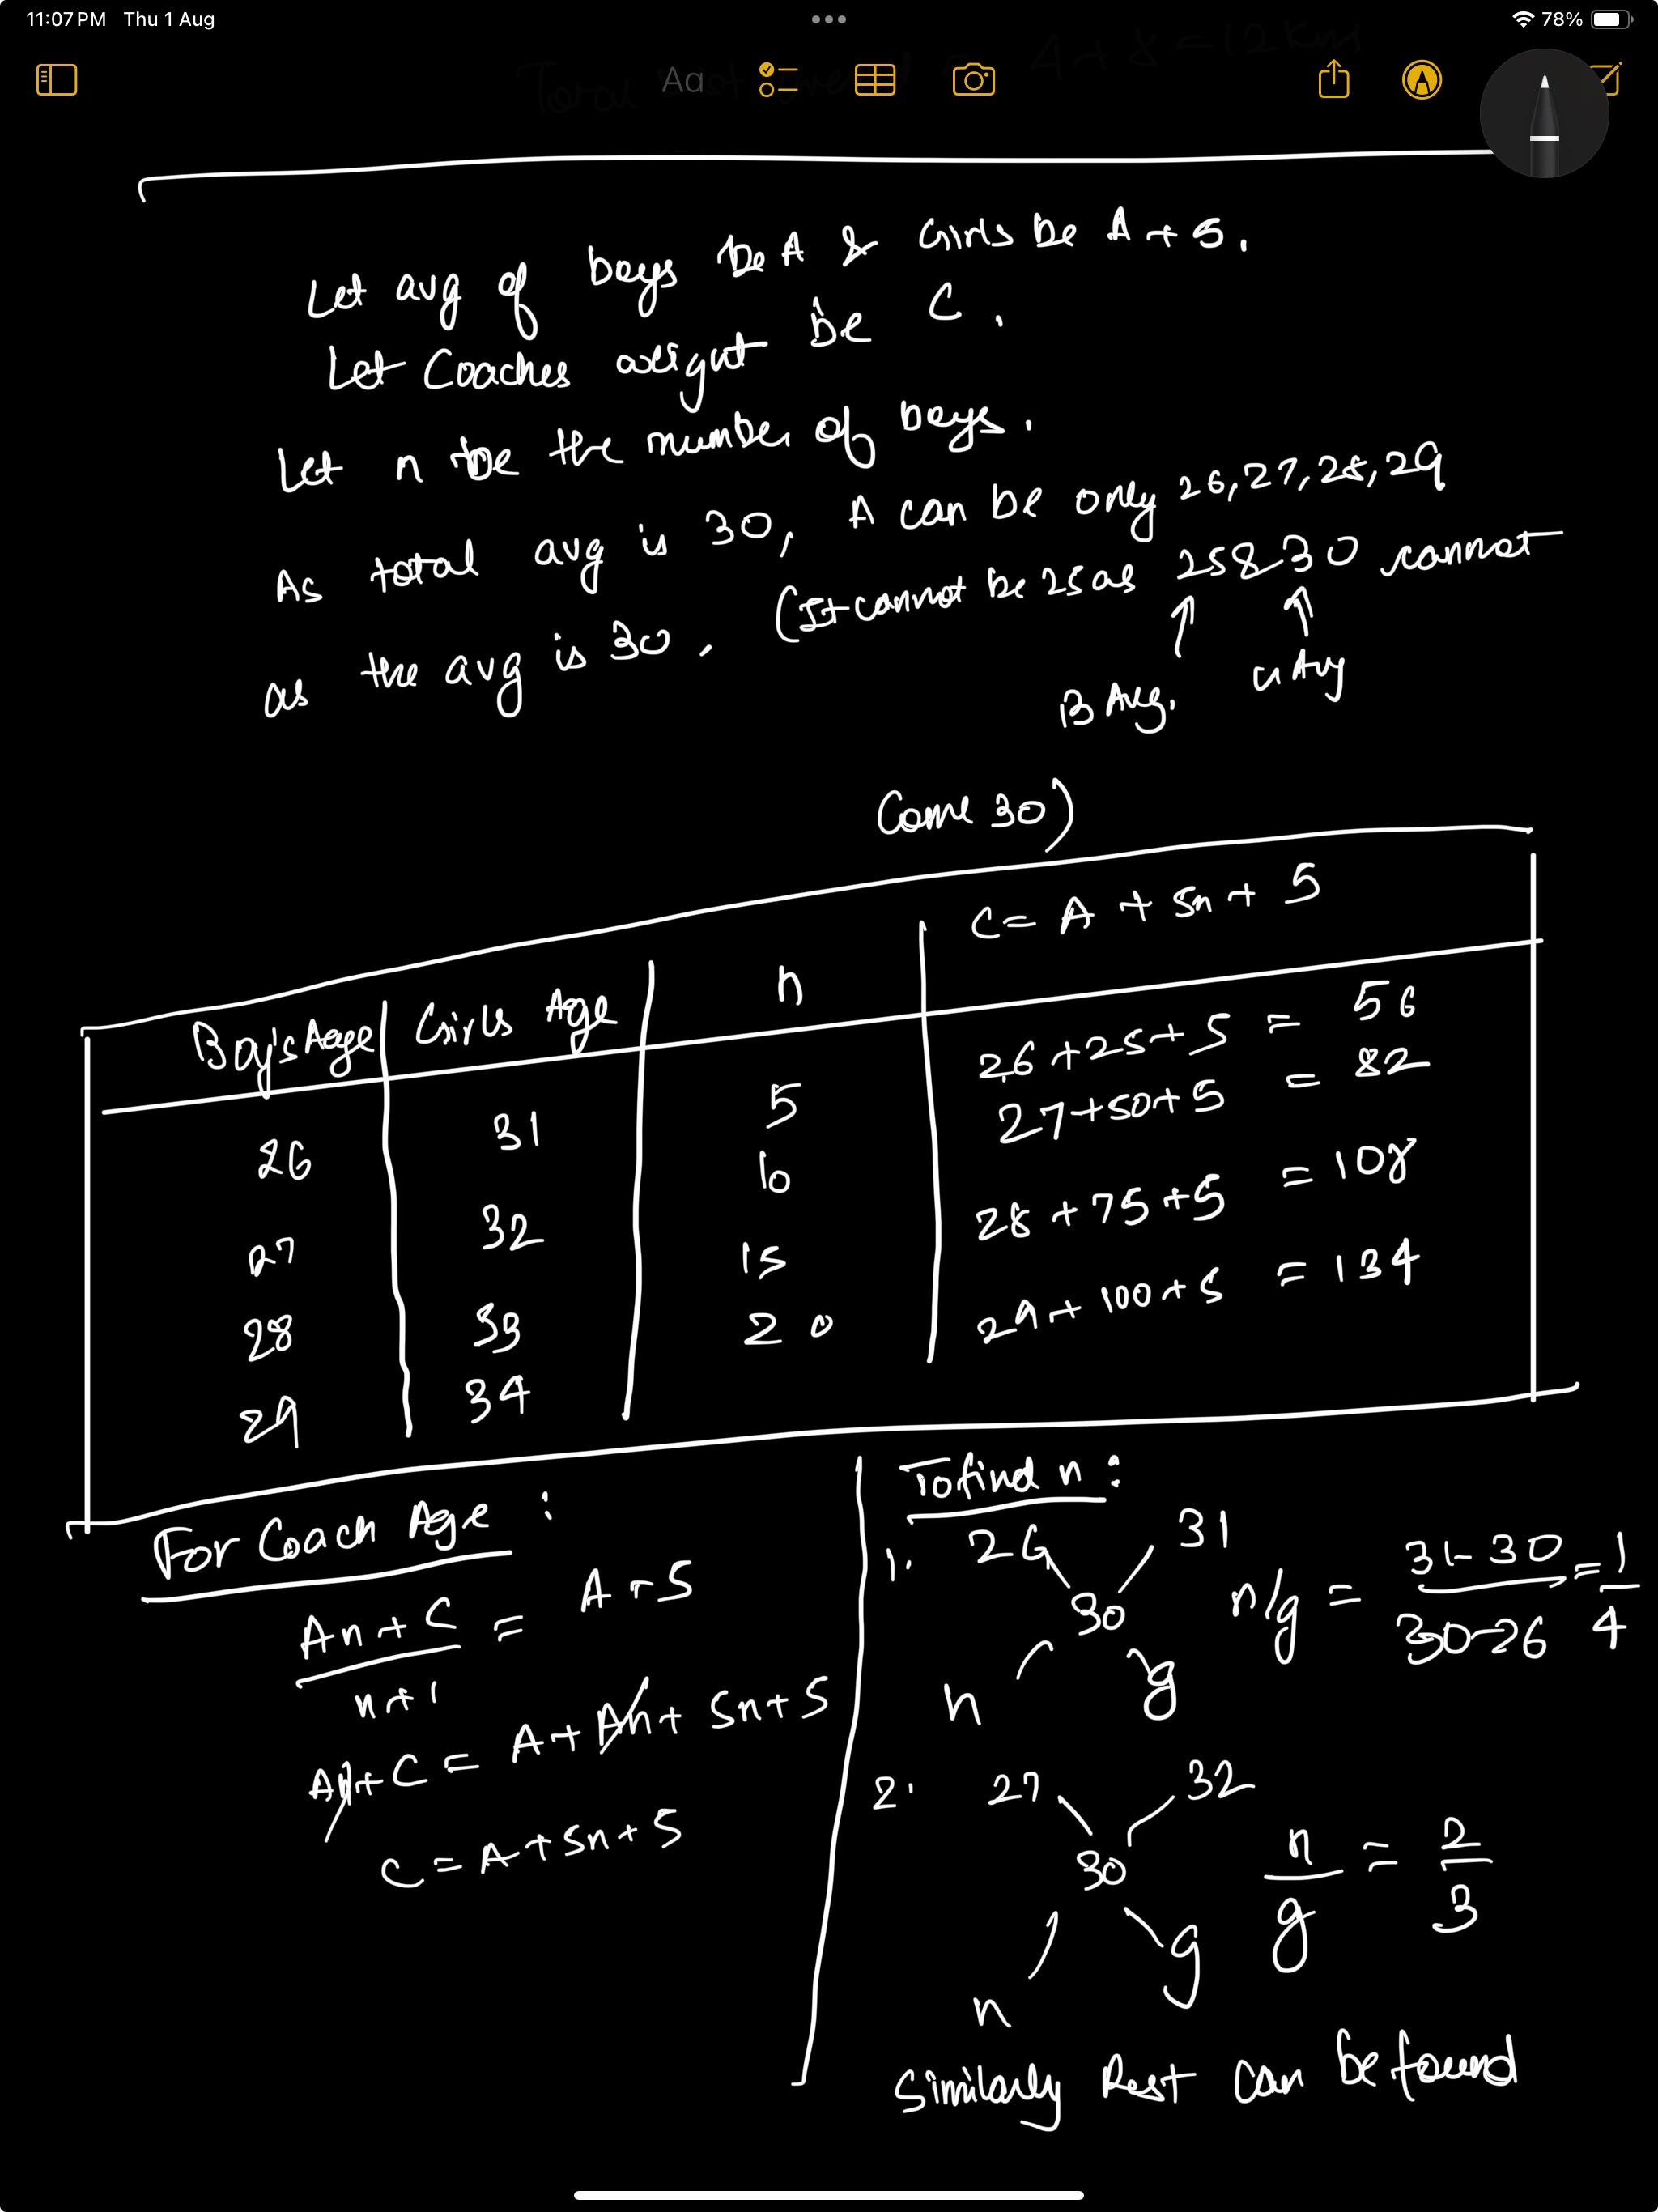 11:07 PM Thu 1 Aug
78%
Total A + 8 = 12 Km
Aa
Let avg of boys be A & Girls be A + 5.
Let Coaches weight be C.
Let n be the number of boys.
As total avg is 30, A can be only 26, 27, 28, 29
as the avg is 30. (It cannot be 25 as 25 & 30 cannot
B Avg. G Avg
Come 30)
Boy's Age Girls Age n C = A + 5n + 5
26 31 5 26 + 25 + 5 = 56
27 32 10 27 + 50 + 5 = 82
28 33 15 28 + 75 + 5 = 108
29 34 20 29 + 100 + 5 = 134
For Coach Age :
An + C = A + 5
n + 1
An + C = A + An + 5n + 5
C = A + 5n + 5
To find n :
1. 26 31
30
n g
n/g = 31 - 30 = 1
30 - 26 4
2. 27 32
30
n g
n = 2
g 3
Similarly Rest can be found